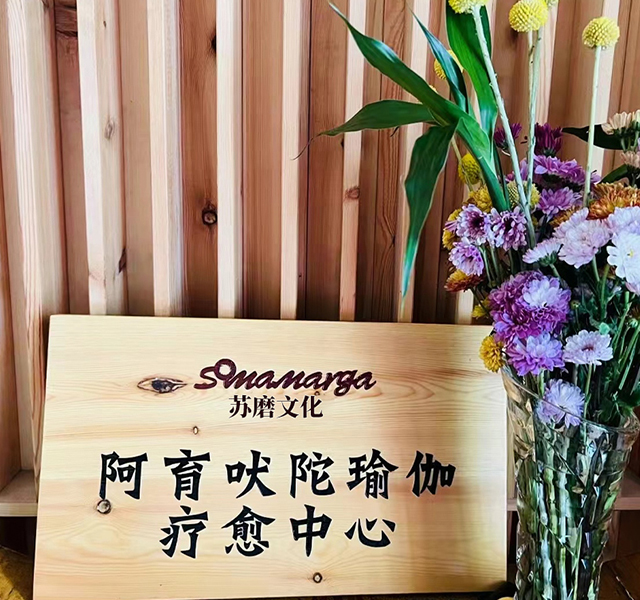 Somamarga
苏磨文化
阿育吠陀瑜伽
疗愈中心